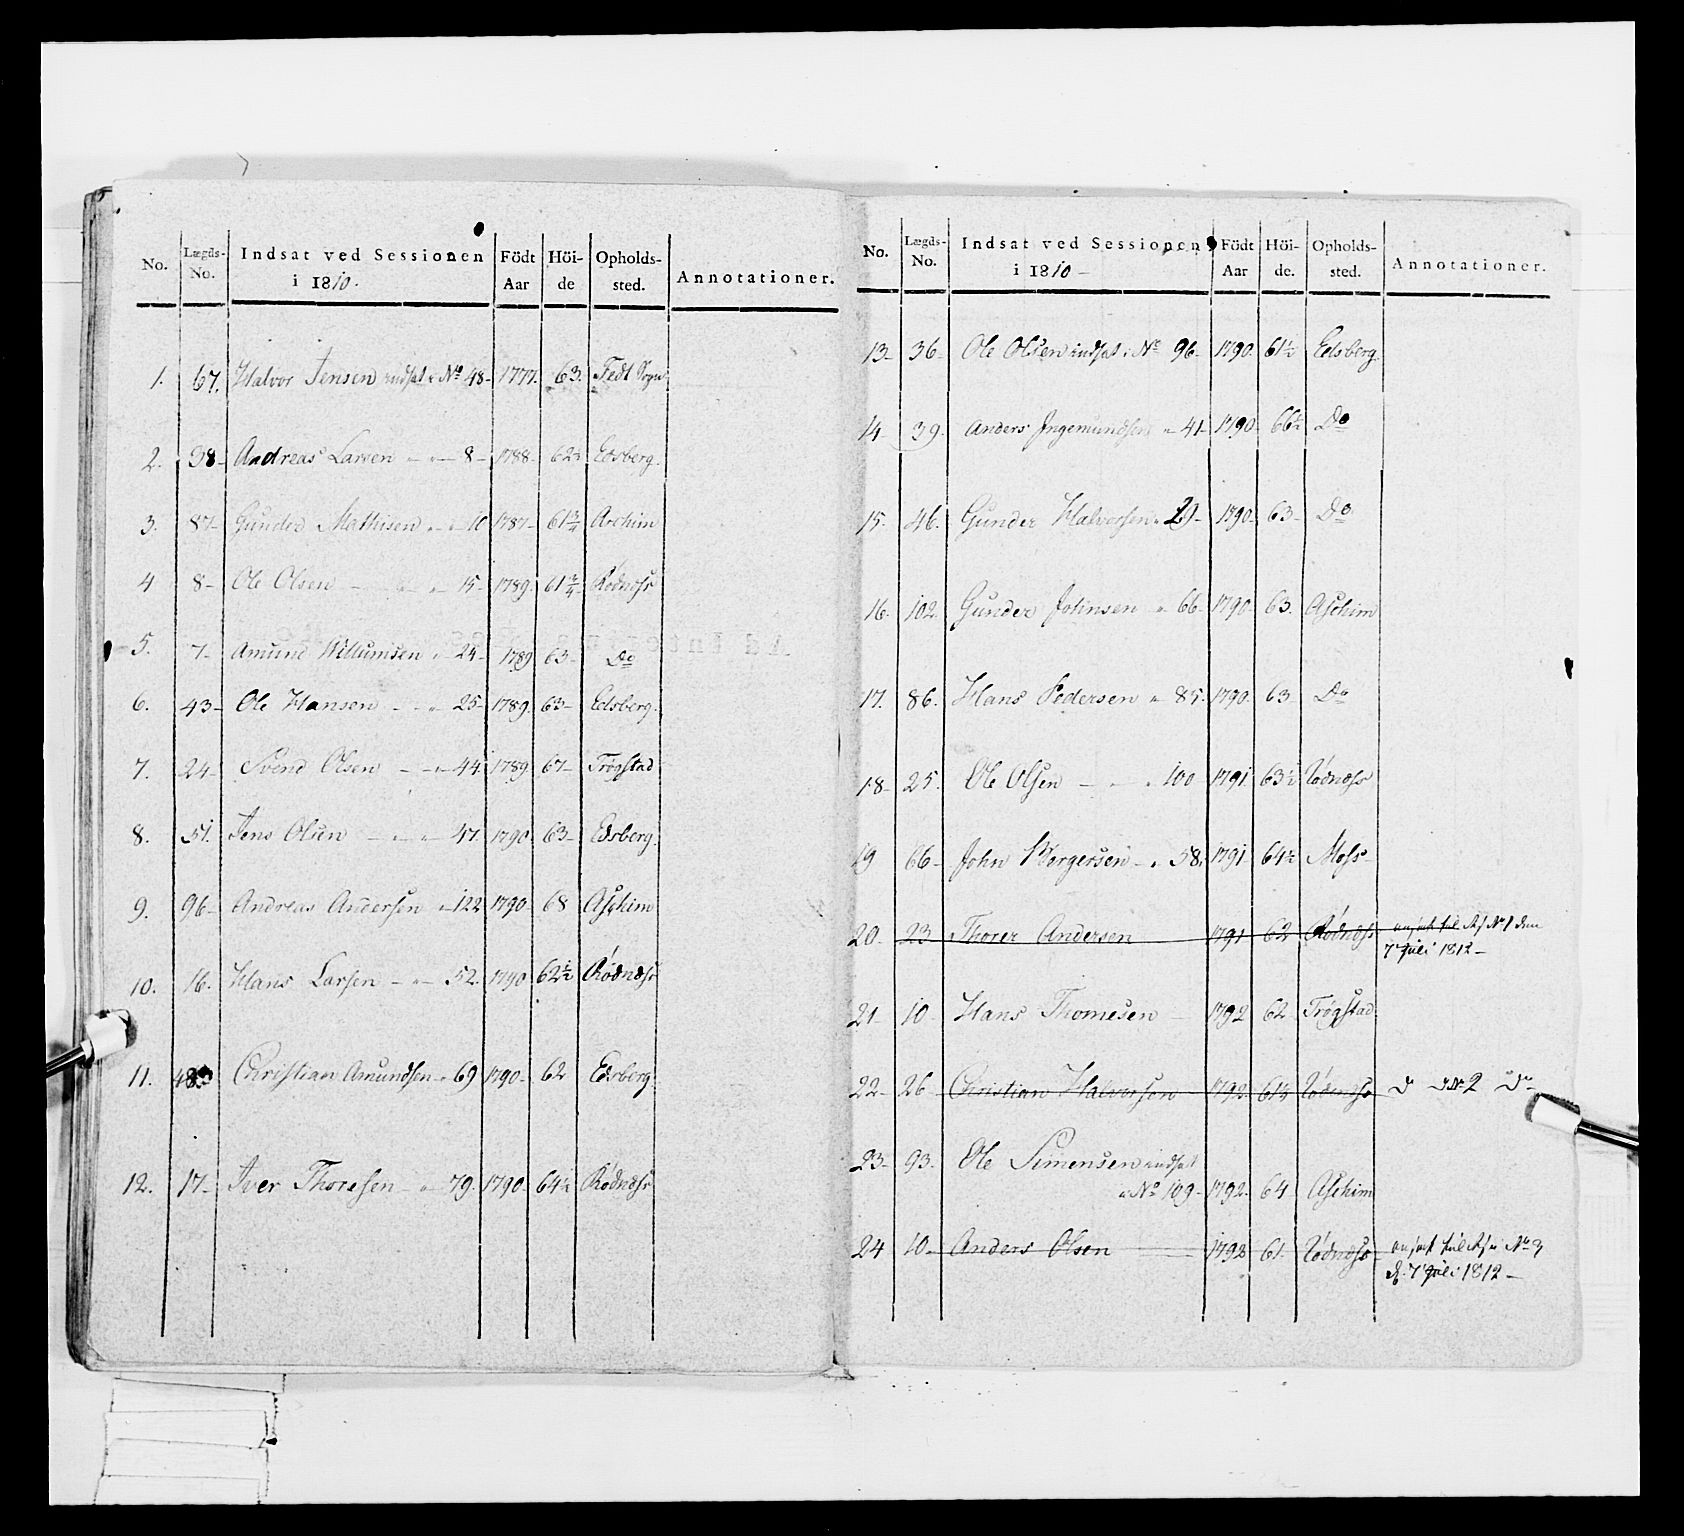 No. Lægds-No. Indsat ved Sessionen i 1810. Födt Aar Höi-de Opholds-sted. Annotationer.
1. 67. Halvor Jensen indsat i No 48- 1777. 63. Fedt Sogn
2. 38- Andreas Larsen " " 8- 1788- 62½ Edsberg.
3. 87- Gunder Mathisen " " 10 1787- 61¾ Aschim
4 8- Ole Olsen - " " 15- 1789. 61¾ Rödnæss
5. 7- Amund Willumsen " 24- 1789 63- Do
6. 43- Ole Hansen - - " 25- 1789. 63- Edsberg.
7. 24- Svend Olsen - " 44 1789 67- Trögstad
8. 51. Jens Olsen - " " 47. 1790. 63- Edsberg.
9. 96- Andreas Andersen " 122 1790- 68 Aschim
10. 16. Hans Larsen - " 52. 1790 62½ Rödnæss
11. 48 Christian Amundsen " 69 1790- 62 Edsberg
12. 17- Iver Thoresen - " 79. 1790- 64½ Rödnæss
No. Lægds-No. Indsat ved Sessionen i 1810- Födt Aar Höi-de. Opholds-sted. Annotationer.
13- 36- Ole Olsen indsat i No 96- 1790. 61½ Edsberg.
14 39. Anders Ingemundsen " 41- 1790- 66½ Do
15. 46. Gunder Halvorsen " 29- 1790- 63- Do
16. 102. Gunder Johnsen " 66- 1790. 63. Aschim
17. 86. Hans Pedersen " 85. 1790. 63 Do
18- 25. Ole Olsen - - " 100 1791 63½ Rödnæss
19 66- John Børgersen - " 58. 1791 64½ Moss-
20. 23 Thorer Andersen 1791 62 Rödnæss ansat til No 1 den
7 Juli 1812-
21 10 Hans Thomesen - 1792 62 Trögstad
22- 26 Christian Halvorsen 1792 61½ Rödnæss D No 2 Do
23- 93. Ole Simensen indsat
i No 109- 1792- 64 Aschim
24 10- Anders Olsen 1792 61. Rödnæss ansat til No 3
d. 7 Juli 1812-